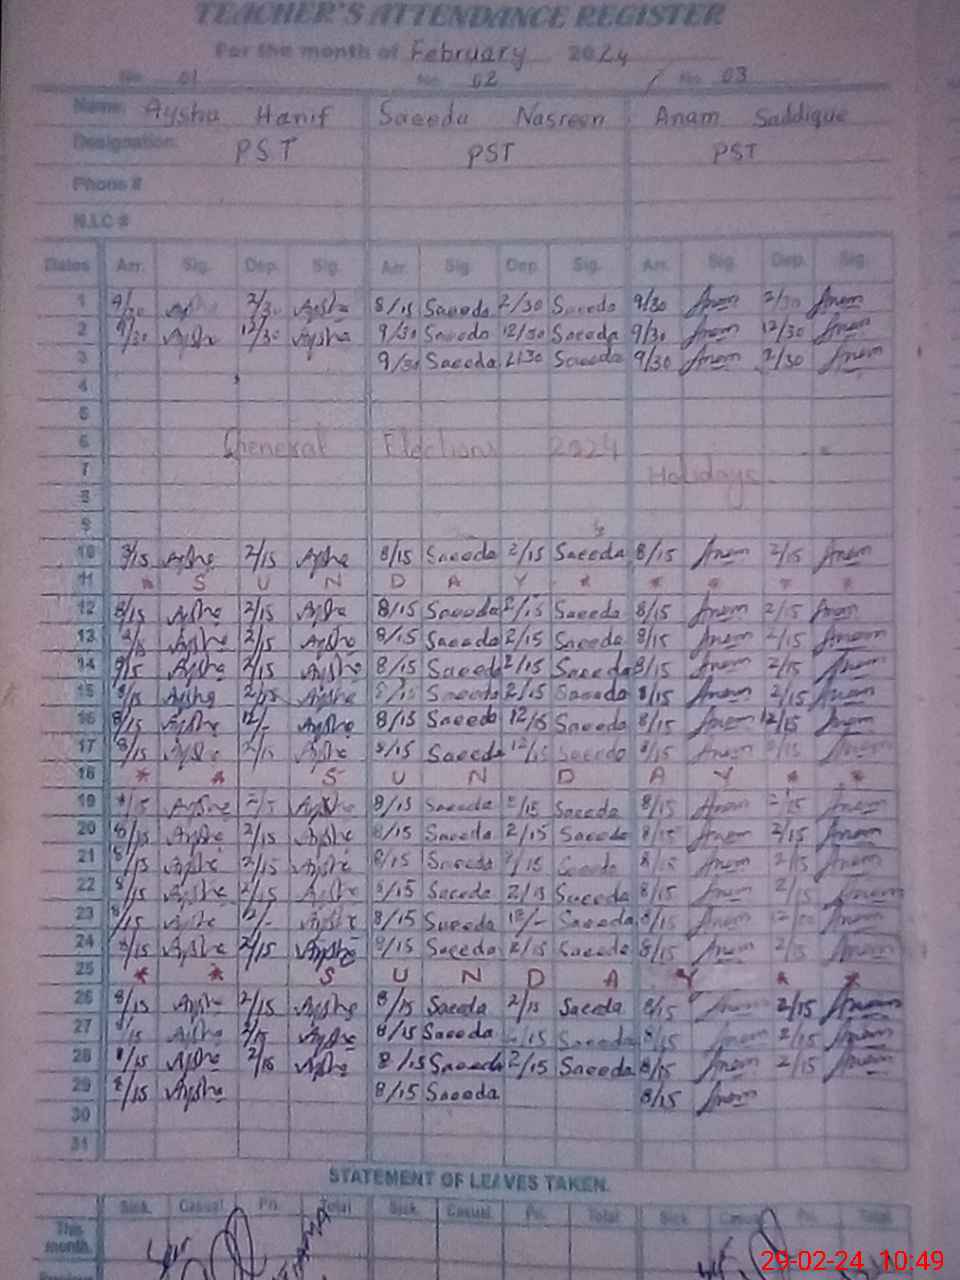 TEACHER'S ATTENDANCE REGISTER
For the month of February 2024
No. 01 No. 02 No. 03
Name: Aysha Hanif Saeeda Nasreen Anam Saddique
Designation: PST PST PST
Phone #
N.I.C #
Dates Arr. Sig. Dep. Sig. Arr. Sig. Dep. Sig. Arr. Sig. Dep. Sig.
1 9/30 Aysha 2/30 Aysha 8/15 Saeeda 2/30 Saeeda 9/30 Anam 2/30 Anam
2 9/30 Aysha 12/30 Aysha 9/30 Saeeda 12/30 Saeeda 9/30 Anam 12/30 Anam
3 9/30 Saeeda 2/30 Saeeda 9/30 Anam 2/30 Anam
4
5
6 General Elections 2024
7 Holidays
8
9
10 8/15 Aysha 2/15 Aysha 8/15 Saeeda 2/15 Saeeda 8/15 Anam 2/15 Anam
11 * S U N D A Y * * * * *
12 8/15 Aysha 2/15 Aysha 8/15 Saeeda 2/15 Saeeda 8/15 Anam 2/15 Anam
13 Aysha 2/15 Aysha 8/15 Saeeda 2/15 Saeeda 8/15 Anam 2/15 Anam
14 Aysha 2/15 Aysha 8/15 Saeeda 2/15 Saeeda 8/15 Anam 2/15 Anam
15 8/15 Aysha 2/15 Aysha Saeeda 2/15 Saeeda 8/15 Anam 2/15 Anam
16 8/15 Aysha 12/- Aysha 8/15 Saeeda 12/15 Saeeda 8/15 Anam 12/15 Anam
17 8/15 Aysha 2/15 Aysha 8/15 Saeeda 12/15 Saeeda 8/15 Anam Anam
18 * * S U N D A Y * *
19 Aysha Aysha 8/15 Saeeda 2/15 Saeeda 8/15 Anam 2/15 Anam
20 8/15 Aysha 2/15 Aysha 8/15 Saeeda 2/15 Saeeda 8/15 Anam 2/15 Anam
21 8/15 Aysha 2/15 Aysha 8/15 Saeeda 2/15 Saeeda 8/15 Anam 2/15 Anam
22 8/15 Aysha 2/15 Aysha 8/15 Saeeda 2/15 Saeeda 8/15 Anam 2/15 Anam
23 8/15 Aysha 12/- Aysha 8/15 Saeeda 12/- Saeeda 8/15 Anam Anam
24 8/15 Aysha 2/15 Aysha 8/15 Saeeda 2/15 Saeeda 8/15 Anam 2/15 Anam
25 * * S U N D A Y * *
26 8/15 Aysha 2/15 Aysha 8/15 Saeeda 2/15 Saeeda 8/15 Anam 2/15 Anam
27 8/15 Aysha 2/15 Aysha 8/15 Saeeda 2/15 Saeeda 8/15 Anam 2/15 Anam
28 8/15 Aysha 2/15 Aysha 8/15 Saeeda 2/15 Saeeda 8/15 Anam 2/15 Anam
29 8/15 Aysha 8/15 Saeeda 8/15 Anam
30
31
STATEMENT OF LEAVES TAKEN.
Sick. Casual. Pri. Total Sick. Casual. Pri. Total Sick. Casual. Pri. Total
This month.
Previous
29-02-24 10:49